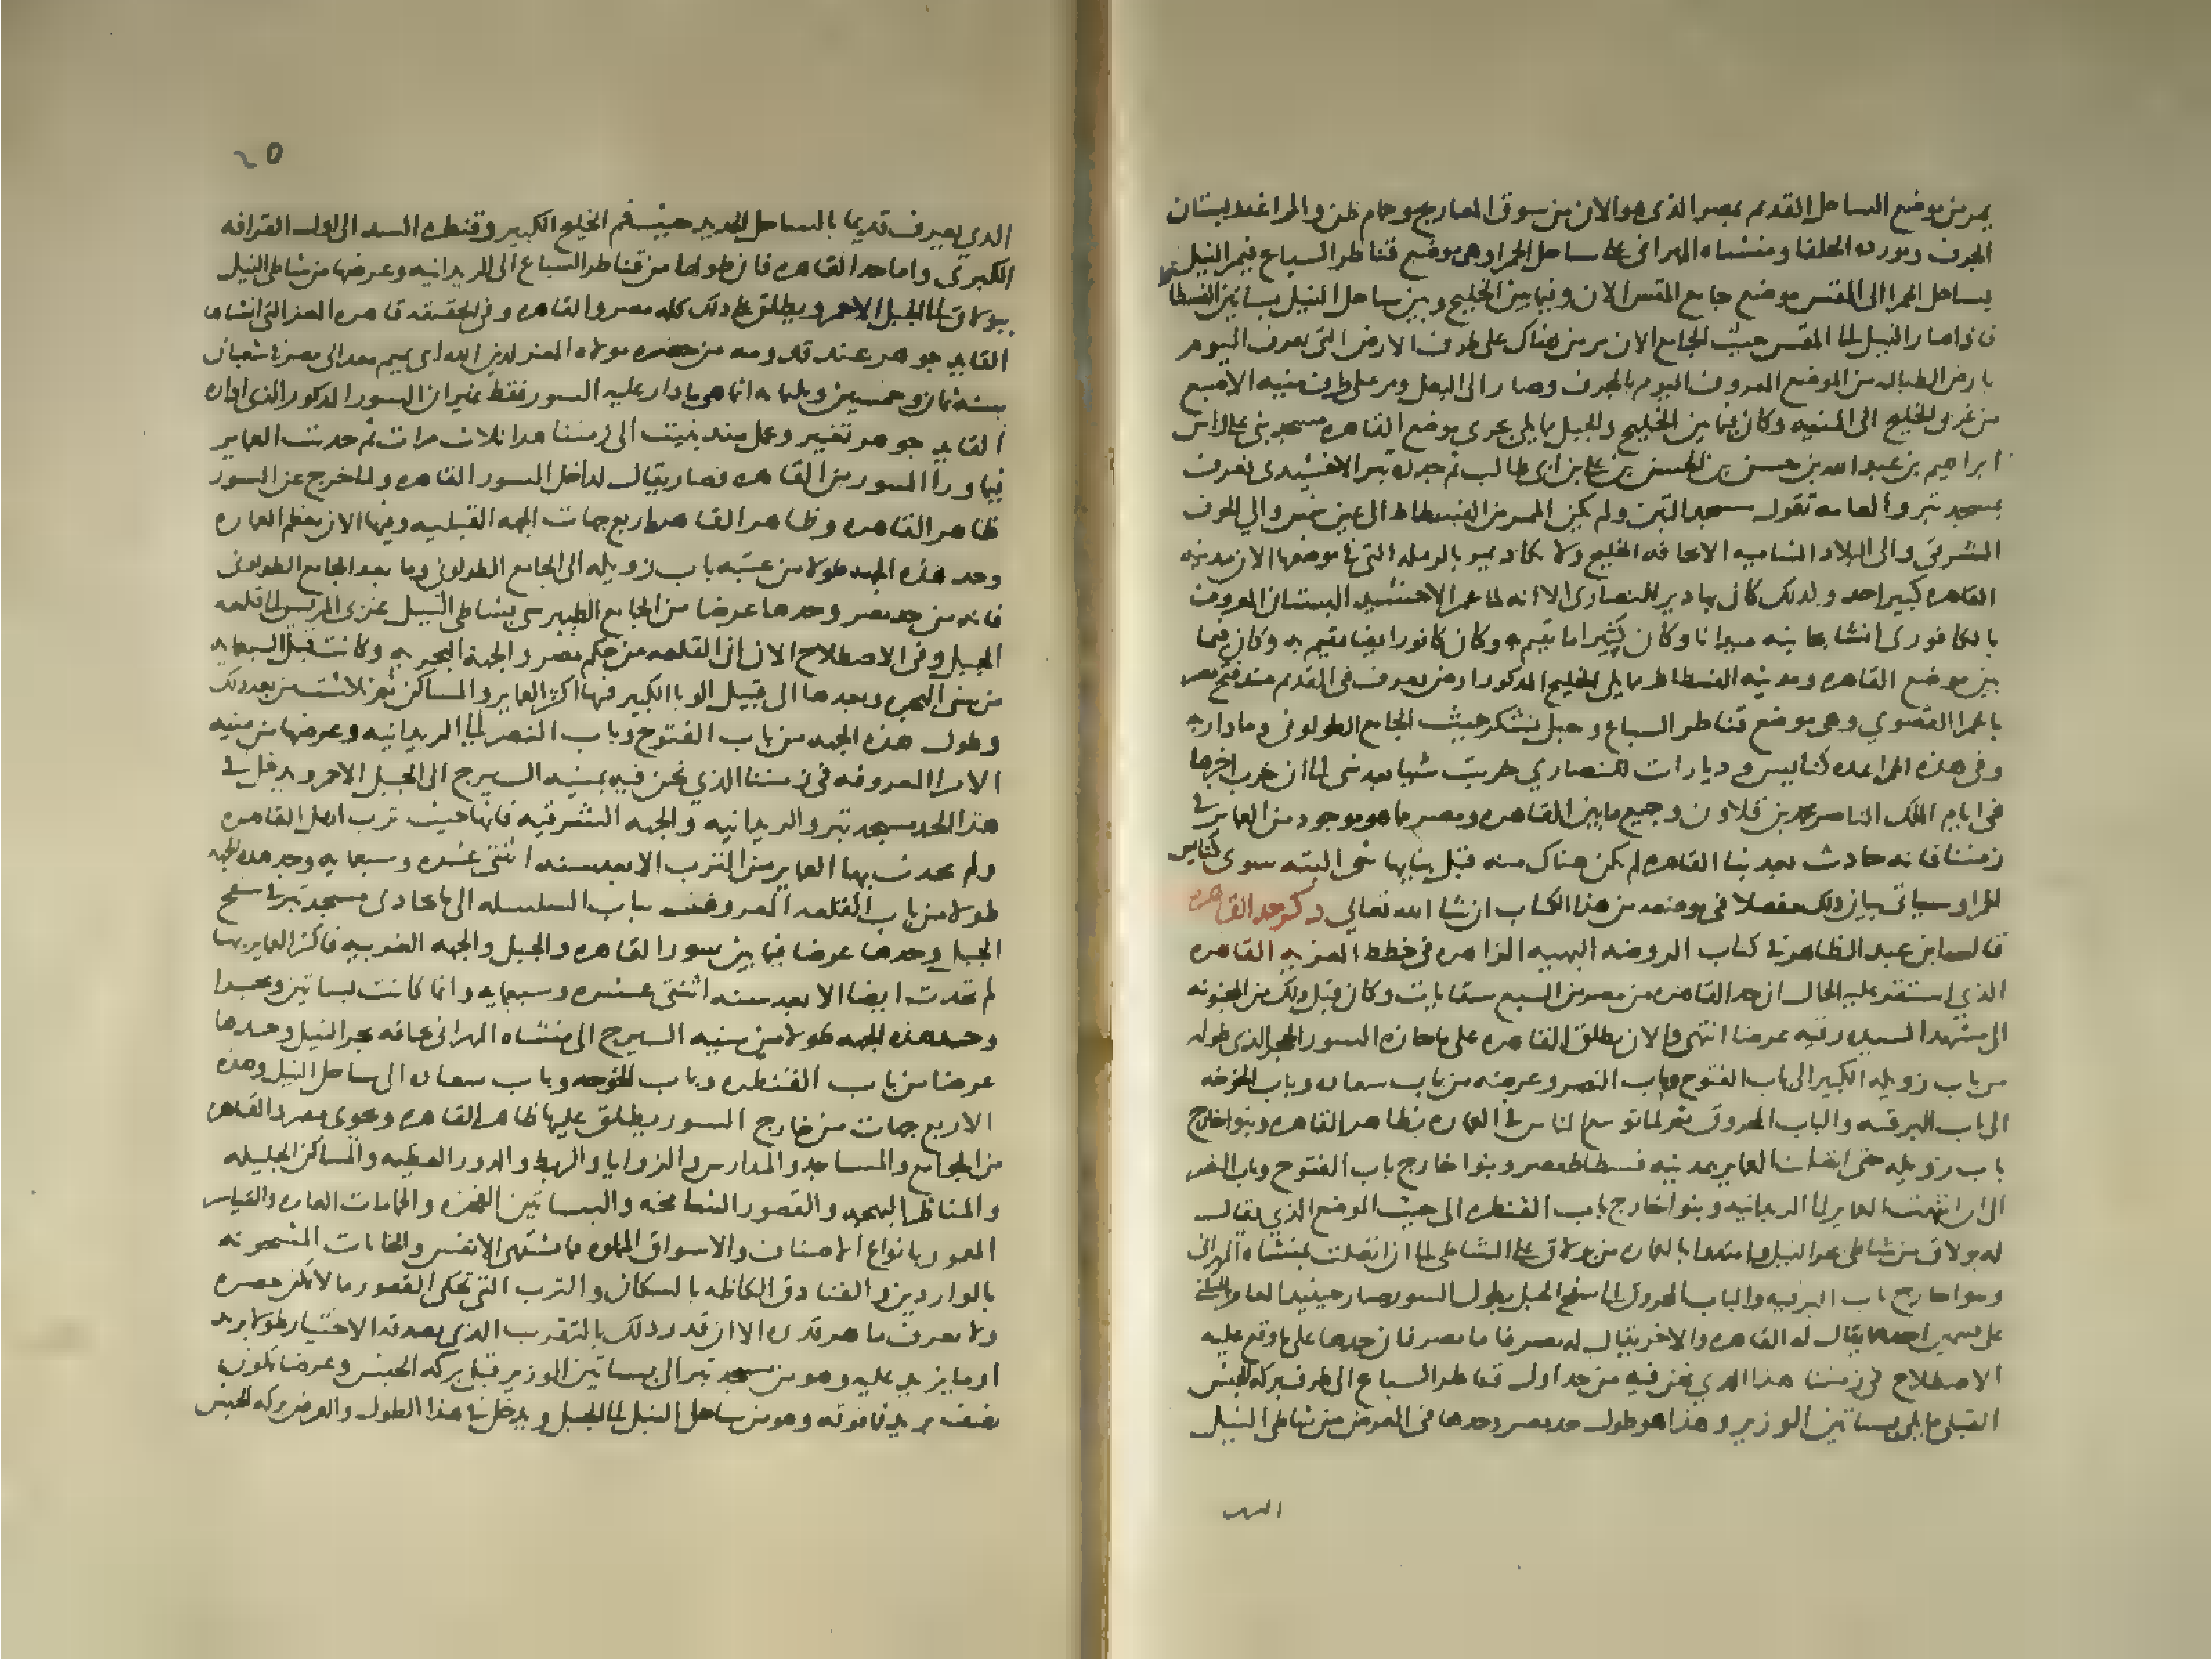 يمر من موضع الساحل القديم بمصر الذى هو الان من سوق المعاريج وحمام طن والمراغه وبستان
الجرف وموردة الحلفا ومنشاه المهرانى على ساحل الحمرا وهى موضع قناطر السباع فيمر النيل
بساحل الحمرا الى المقس موضع جامع المقس الان وفيما بين الخليج وبين ساحل النيل بساتين الفسطاط
فاذا صار النيل الى المقس حيث الجامع الان مر من هناك على طرف الارض التى تعرف اليوم
بارض الطباله من الموضع المعروف اليوم بالجرف وصار الى البعل ومر على طرف منيه الاصبع
من غربى الخليج الى المنيه وكان فيما بين الخليج والجبل مما يلى بحرى موضع القاهره مسجد بنى على راس
ابراهيم بن عبد الله بن حسن بن الحسن بن على بن ابى طالب ثم جدده تبر الاخشيدى فعرف
بمسجد تبر والعامه تقول مسجد التبن ولم يكن الممر من الفسطاط الى عين شمس والى الحوف
الشرقى والى البلاد الشاميه الا بحافه الخليج ولا يكاد يمر بالرمله التى فى موضعها الان مدينه
القاهره كبير احد ولذلك كان بها دير للنصارى الا انه لما عمر الاخشيد البستان المعروف
بالكافورى انشا بجانبه ميدانا وكان كثيرا ما يقيم به وكان كافور ايضا يقيم به وكان فيما
بين موضع القاهره ومدينه الفسطاط مما يلى الخليج المذكور ارض تعرف فى القديم منذ فتح مصر
بالحمرا القصوي وهى موضع قناطر السباع وجبل يشكر حيث الجامع الطولونى وما دار به
وفى هذه الحمرا عده كنايس وديارات للنصاري خربت شيا بعد شى الى ان خرب اخرها
فى ايام الملك الناصر محمد بن قلاون وجميع ما بين القاهره ومصر مما هو موجود من العماير فى
زمننا فانه حادث بعد بنا القاهره لم يكن هناك منه قبل بنايها شى البته سوى كنايس
الحمرا وسياتى بيان ذلك مفصلا فى موضعه من هذا الكتاب ان شا الله تعالي ذكر حد القاهره
قال ابن عبد الظاهر فى كتاب الروضه البهيه الزاهره فى خطط المعزيه القاهره
الذي استقر عليه الحال ان حد القاهره من مصر من السبع سقايات وكان قبل ذلك من المجنونه
الى مشهد السيده رقيه عرضا انتهى والان يطلق القاهره على ما حازه السور الحجر الذى طوله
من باب زويله الكبير الى باب الفتوح وباب النصر وعرضه من باب سعاده وباب الخوخه
الى باب البرقيه والباب المحروق ثم لما توسع الناس فى العماره بظاهر القاهره وبنوا خارج
باب زويله حتى اتصلت العماير بمدينه فسطاط مصر وبنوا خارج باب الفتوح وباب النصر
الى ان انتهت العماير الى الريدانيه وبنوا خارج باب القنطره الى حيث الموضع الذي يقال
له بولاق من شاطى بحر النيل وامتدوا بالعماره من بولاق على الشاطى الى ان اتصلت بمنشاه المهرانى
وبنوا خارج باب البرقيه والباب المحروق الى سفح الجبل بطول السور صار حينيذ العامر بالسكنى
على قسمين احدهما يقال له القاهره والاخر يقال له مصر فاما مصر فان حدها على ما وقع عليه
الاصطلاح فى زمننا هذا الذي نحن فيه من حد اول قناطر السباع الى طرف بركه الحبش
القبلى مما يلى بساتين الوزير وهذا هو طول حد مصر وحدها فى العرض من شاطى النيل
٢٥
الذي يعرف قديما بالساحل الجديد حيث فم الخليج الكبير وقنطره السد الى اول القرافه
الكبرى واما حد القاهره فان طولها من قناطر السباع الى الريدانيه وعرضها من شاطى النيل
ببولاق الى الجبل الاحمر ويطلق على ذلك كله مصر والقاهره وفى الحقيقه قاهره المعز التى انشاها
القايد جوهر عند قدومه من حضره مولاه المعز لدين الله ابى تميم معد الى مصر فى شعبان
سنه ثمان وخمسين وثلثمايه انما هى ما دار عليه السور فقط غير ان السور المذكور الذى اداره
القايد جوهر تغير وعمل منذ بنيت الى زمننا هذا ثلاث مرات ثم حدثت العماير
فيما ورا السور من القاهره فصار يقال لداخل السور القاهره ولما خرج عن السور
ظاهر القاهره وظاهر القاهره اربع جهات الجهه القبليه وفيها الان معظم العماره
وحد هذه الجهه طولا من عتبه باب زويله الى الجامع الطولونى وما بعد الجامع الطولونى
فانه من حد مصر وحدها عرضا من الجامع الطيبرسى بشاطى النيل غربى المريس الى قلعه
الجبل وفى الاصطلاح الان ان القلعه من حكم مصر والجهه البحريه وكانت قبل السبعمايه
من سنى الهجره وبعدها الى قبيل الوبا الكبير فيها اكثر العماير والمساكن ثم تلاشت من بعد ذلك
وطول هذه الجهه من باب الفتوح وباب النصر الى الريدانيه وعرضها من منيه
الامرا المعروفه فى زمننا الذي نحن فيه بمنيه السيرج الى الجبل الاحمر ويدخل فى
هذا الحد مسجد تبر والريدانيه والجهه الشرقيه فانها حيث ترب اهل القاهره
ولم تحدث بها العماير من الترب الا بعد سنه اثنتى عشره وسبعمايه وحد هذه الجهه
طولا من باب القلعه المعروف بباب السلسله الى ما يحاذى مسجد تبر فى سفح
الجبل وحدها عرضا فيما بين سور القاهره والجبل والجهه الغربيه فاكثر العماير بها
لم تحدث ايضا الا بعد سنه اثنتى عشره وسبعمايه وانما كانت بساتين وبحرا
وحد هذه الجهه طولا من منيه السيرج الى منشاه المهرانى بحافه بحر النيل وحدها
عرضا من باب القنطره وباب الخوخه وباب سعاده الى ساحل النيل وهذه
الاربع جهات من خارج السور يطلق عليها ظاهر القاهره وتحوى مصر والقاهره
من الجوامع والمساجد والمدارس والزوايا والربط والدور العظيمه والمساكن الجليله
والمناظر البهجه والقصور الشامخه والبساتين النضره والحمامات العامره والقياسر
المعموره بانواع الاصناف والاسواق المملوه مما تشتهى الانفس والخانات المشحونه
بالواردين والفنادق الكاظه بالسكان والترب التى تحكى القصور ما لا يمكن حصره
ولا يعرف ما هو قدره الا ان قدر ذلك بالتقريب الذى يصدقه الاختبار طولا بريد
او ما يزيد عليه وهو من مسجد تبر الى بساتين الوزير قبلى بركه الحبش وعرضا يكون
نصف بريد فما فوقه وهو من ساحل النيل الى الجبل ويدخل فى هذا الطول والعرض بركه الحبش